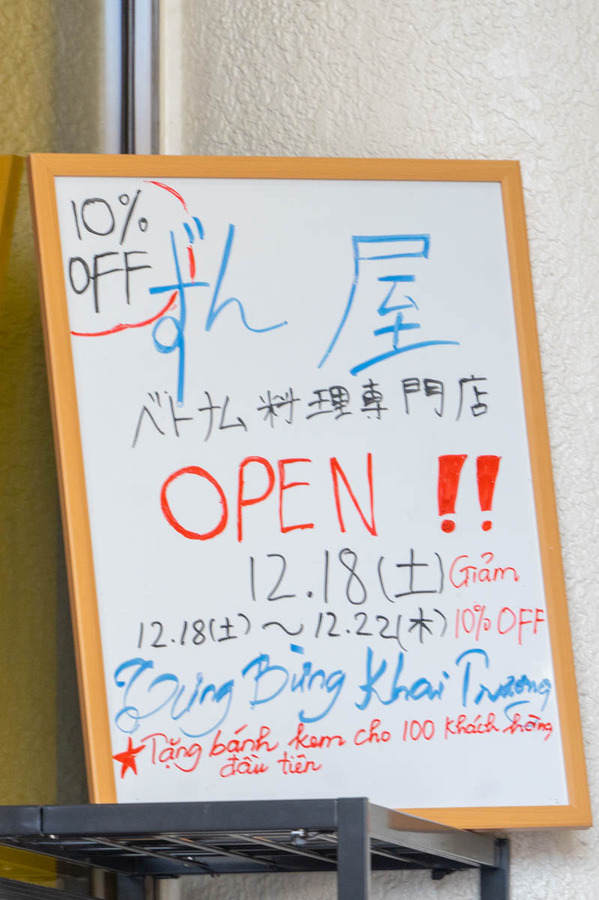 10%
OFF
ずん屋
ベトナム料理専門店
OPEN !!
12.18(土) Giảm
12.18(土)～12.22(木) 10% OFF
Tưng Bừng Khai Trương
★Tặng bánh kem cho 100 khách hàng
đầu tiên